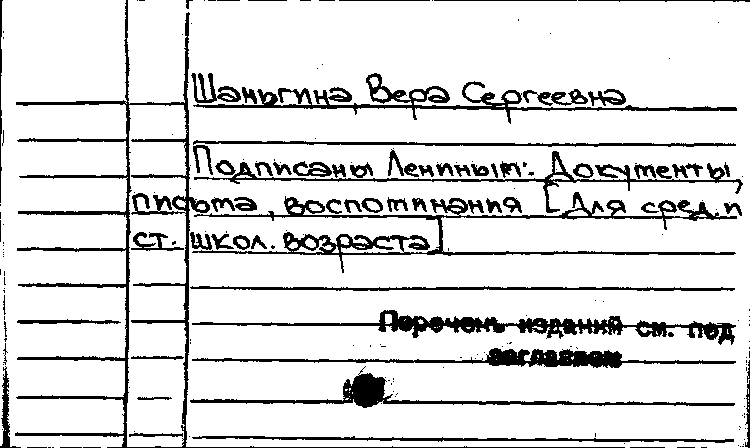 Шаньгина, Вера Сергеевна
Подписаны Лениным: Документы,
письма, воспоминания [Для сред. и
ст. школ. возраста]
Перечень изданий см. под
заглавием